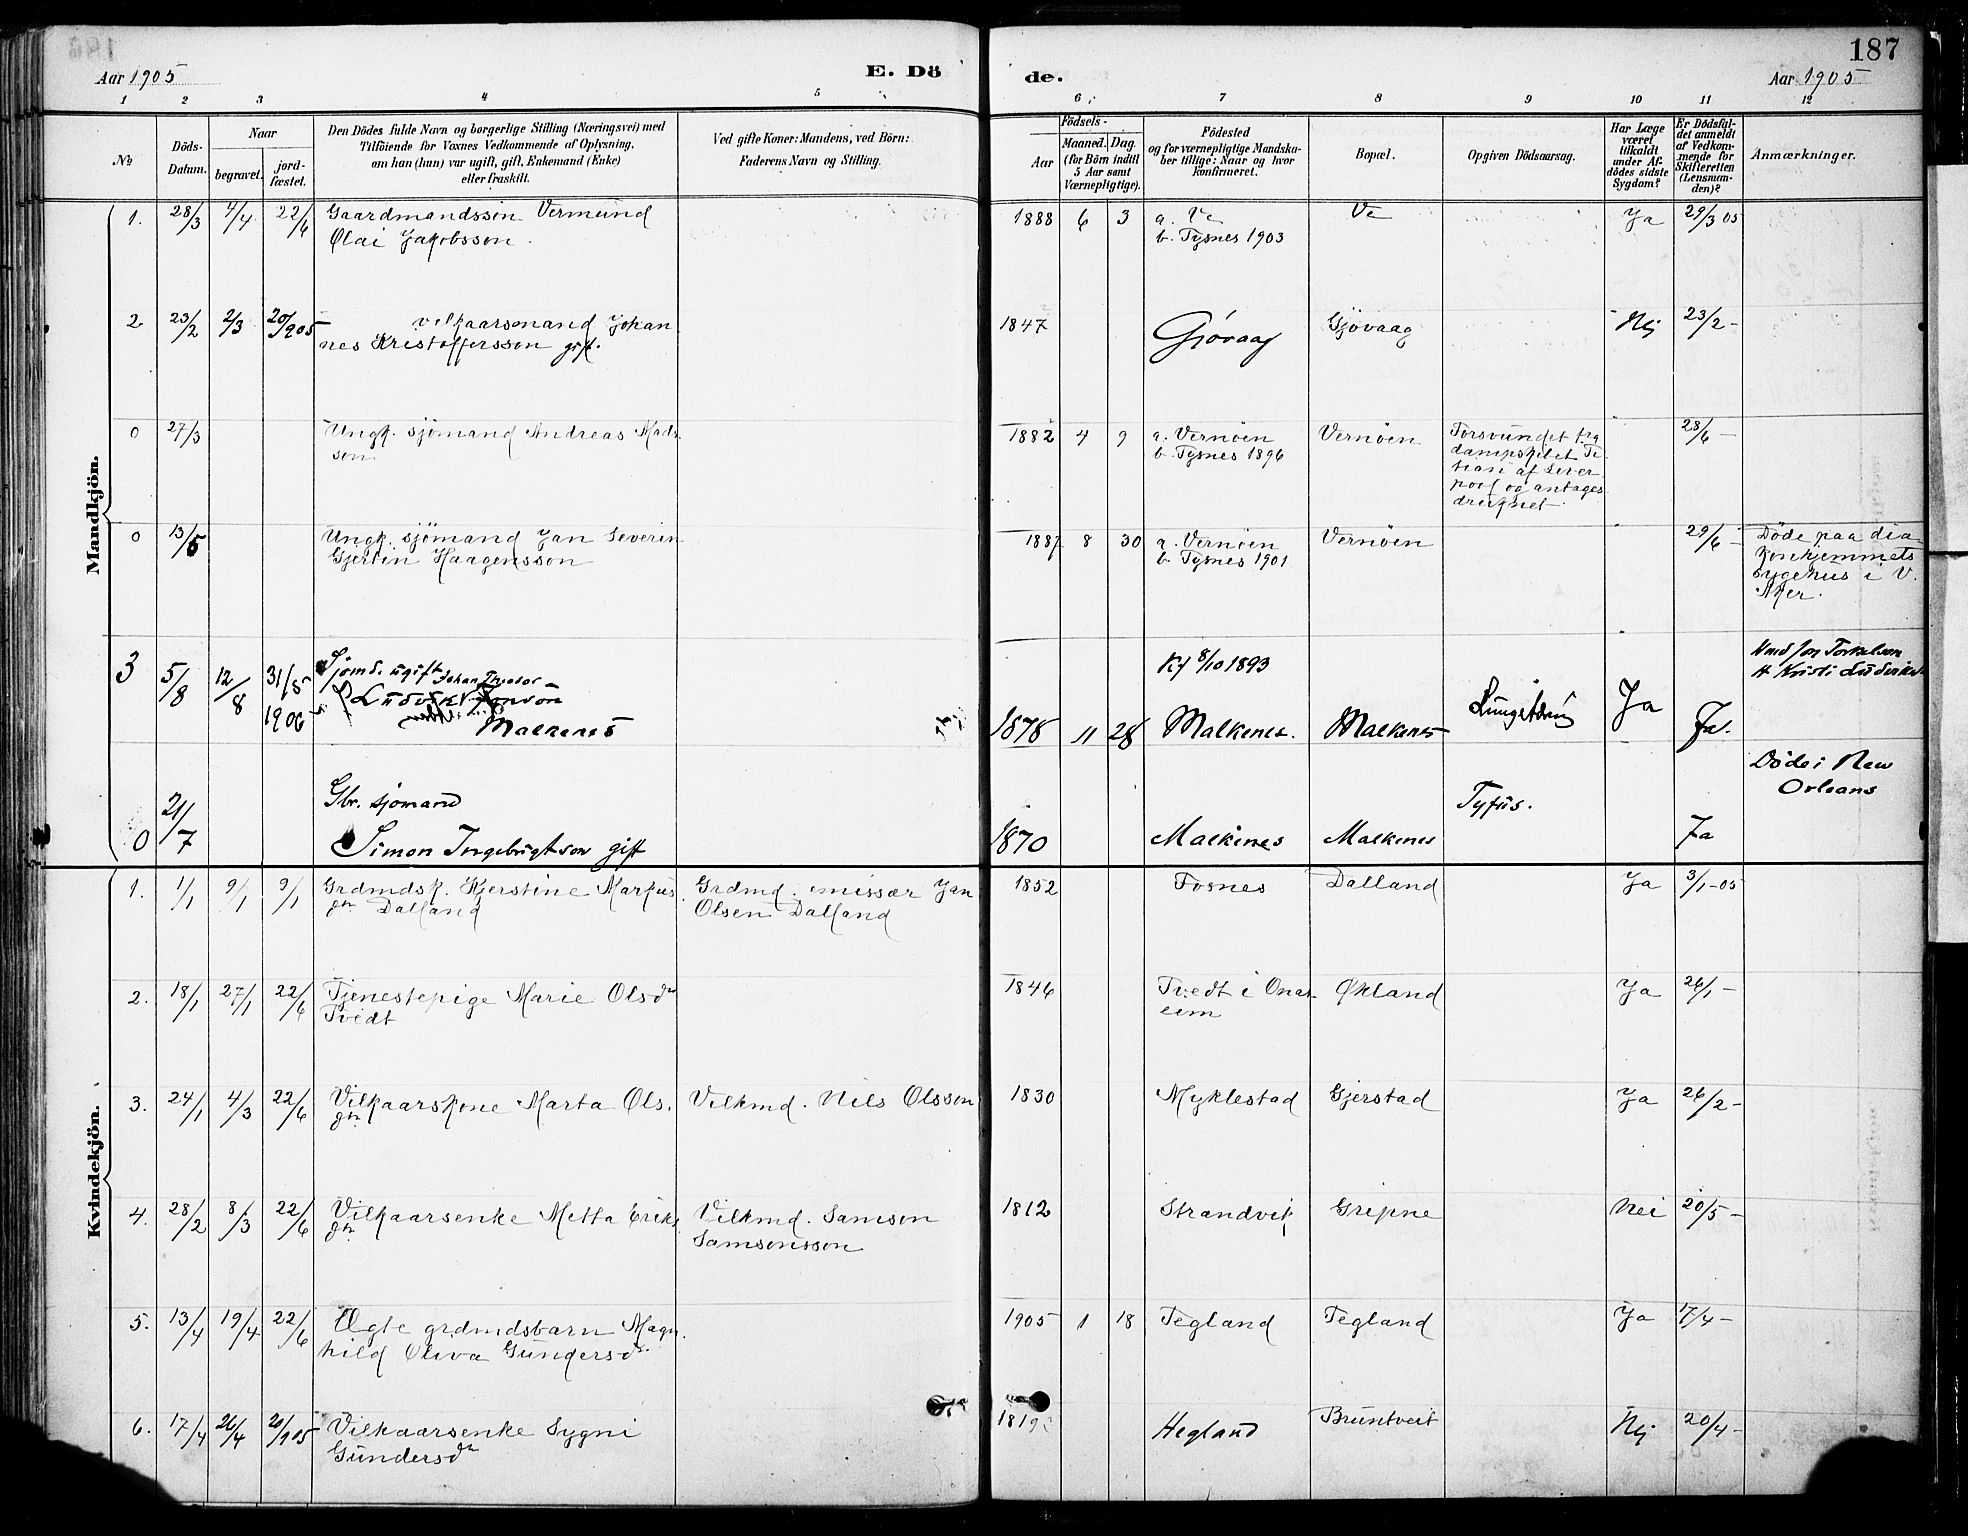 187
Aar 1905
E. Dö
de.
Aar 1905
1 2 3 4 5 6 7 8 9 10 11 12
No
Döds-
Datum.
Naar
begravet.
jord-
fæstet.
Den Dödes fulde Navn og borgerlige Stilling (Næringsvei) med
Tilföiende for Voxnes Vedkommende af Oplysning,
om han (hun) var ugift, gift, Enkemand (Enke)
eller fraskilt.
Ved gifte Koner: Mandens, ved Börn:
Faderens Navn og Stilling.
Födsels-
Aar
Maaned. Dag.
(for Börn indtil
5 Aar samt
Værnepligtige).
Födested
og for værnepligtige Mandska-
ber tillige: Naar og hvor
konfirmeret.
Bopæl.
Opgiven Dödsaarsag.
Har Læge
været
tilkaldt
under Af-
dödes sidste
Sygdom?
Er Dödsfal-
det anmeldt
af Vedkom-
mende for
Skifteretten
(Lensman-
den)?
Anmærkninger.
Mandkjön.
1. 28/3 4/4 22/6 Gaardmandssön Vermund 1888 6 3 a. Ve Ve Ja 29/3 05
Olai Jakobsson. b. Tysnes 1903
2 23/2 2/3 20/9 05 vilkaarsmand Johan 1847 Gjövaag Gjövaag Nej 23/2 -
nes Kristoffersson gift.
0 27/3 Ungk. sjömand Andreas Mads 1882 4 9 a. Vernöen Vernöen Forsvundet fra 28/6 -
son b. Tysnes 1896 dampskibet Ti
tian af Liver
pool og antages
druknet
0 13/5 Ungk. sjömand Jan Severin 1887 8 30 a. Vernöen Vernöen 29/6 - Döde paa dia
Gjertin Haagensson b. Tysnes 1901 konhjemmets
sygehus i V.
Aker.
3 5/8 12/8 31/5 1906 Sjömd. ugift Johan Theodor Kf 8/10 1893
Ludvik Jonsön
Malkenes 1878 11 28 Malkenes. Malkenes Ja Ja.
0 21/7 Gbr. sjömand Tyfus. Döde i New
Orleans
Simon Ingebrigtson gift 1870 Malkenes Malkenes Ja
Kvindekjön.
1. 1/1 9/1 9/1 Grdmdsk. Kjerstine Markus Grdmd. emissær Jan 1852 Fosnes Dalland Ja 3/1-05
dtr Dalland Olsen Dalland
2. 18/1 27/1 22/6 Tjenestepige Marie Olsdr 1846 Tvedt i Onar Økland Ja 26/1 -
Tvedt eim
3. 24/1 4/3 22/6 Vilkaarskone Marta Ols. Vilkmd. Nils Olsson 1830 Myklestad Gjerstad Ja 26/2 -
dtr
4. 28/2 8/3 22/6 Vilkaarsenke Metta Eriks Vilkmd. Samson 1812 Strandvik Gripne Nei 20/5 -
dtr Samsonsson
5. 13/4 19/4 22/6 Ægte grdmdsbarn Magn. 1905 1 18 Tegland Tegland Ja 17/4 -
hild Oliva Gundersdr
6. 17/4 26/4 20/9 05 Vilkaarsenke Sygni Hegland Bruntveit Nej 20/4 -
Gundersdr